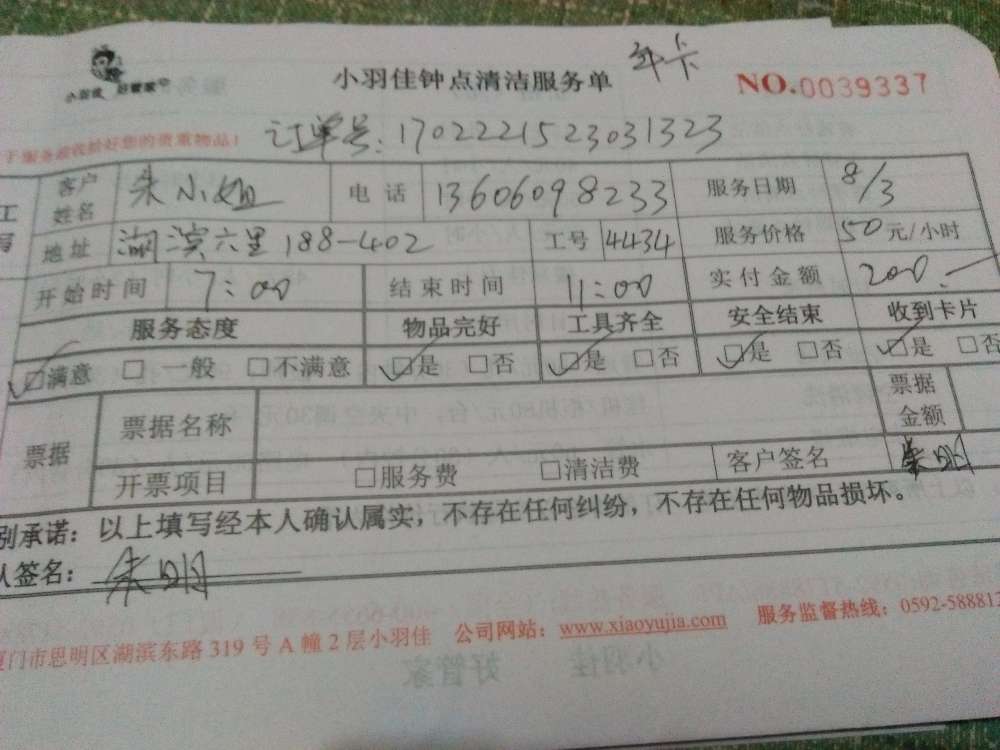 小羽佳 好管家 小羽佳钟点清洁服务单 年卡 NO.0039337
于服务前收拾好您的贵重物品！ 订单号：1702221523031323
客户姓名 朱小姐 电话 13606098233 服务日期 8/3
地址 湖滨六里188-402 工号 4434 服务价格 50元/小时
开始时间 7:00 结束时间 11:00 实付金额 200.
服务态度 物品完好 工具齐全 安全结束 收到卡片
☑满意 □一般 □不满意 ☑是 □否 ☑是 □否 ☑是 □否 ☑是 □否
票据 票据名称 票据金额
开票项目 □服务费 □清洁费 客户签名 朱明
别承诺：以上填写经本人确认属实，不存在任何纠纷，不存在任何物品损坏。
人签名：朱明
厦门市思明区湖滨东路319号A幢2层小羽佳 公司网站：www.xiaoyujia.com 服务监督热线：0592-588812